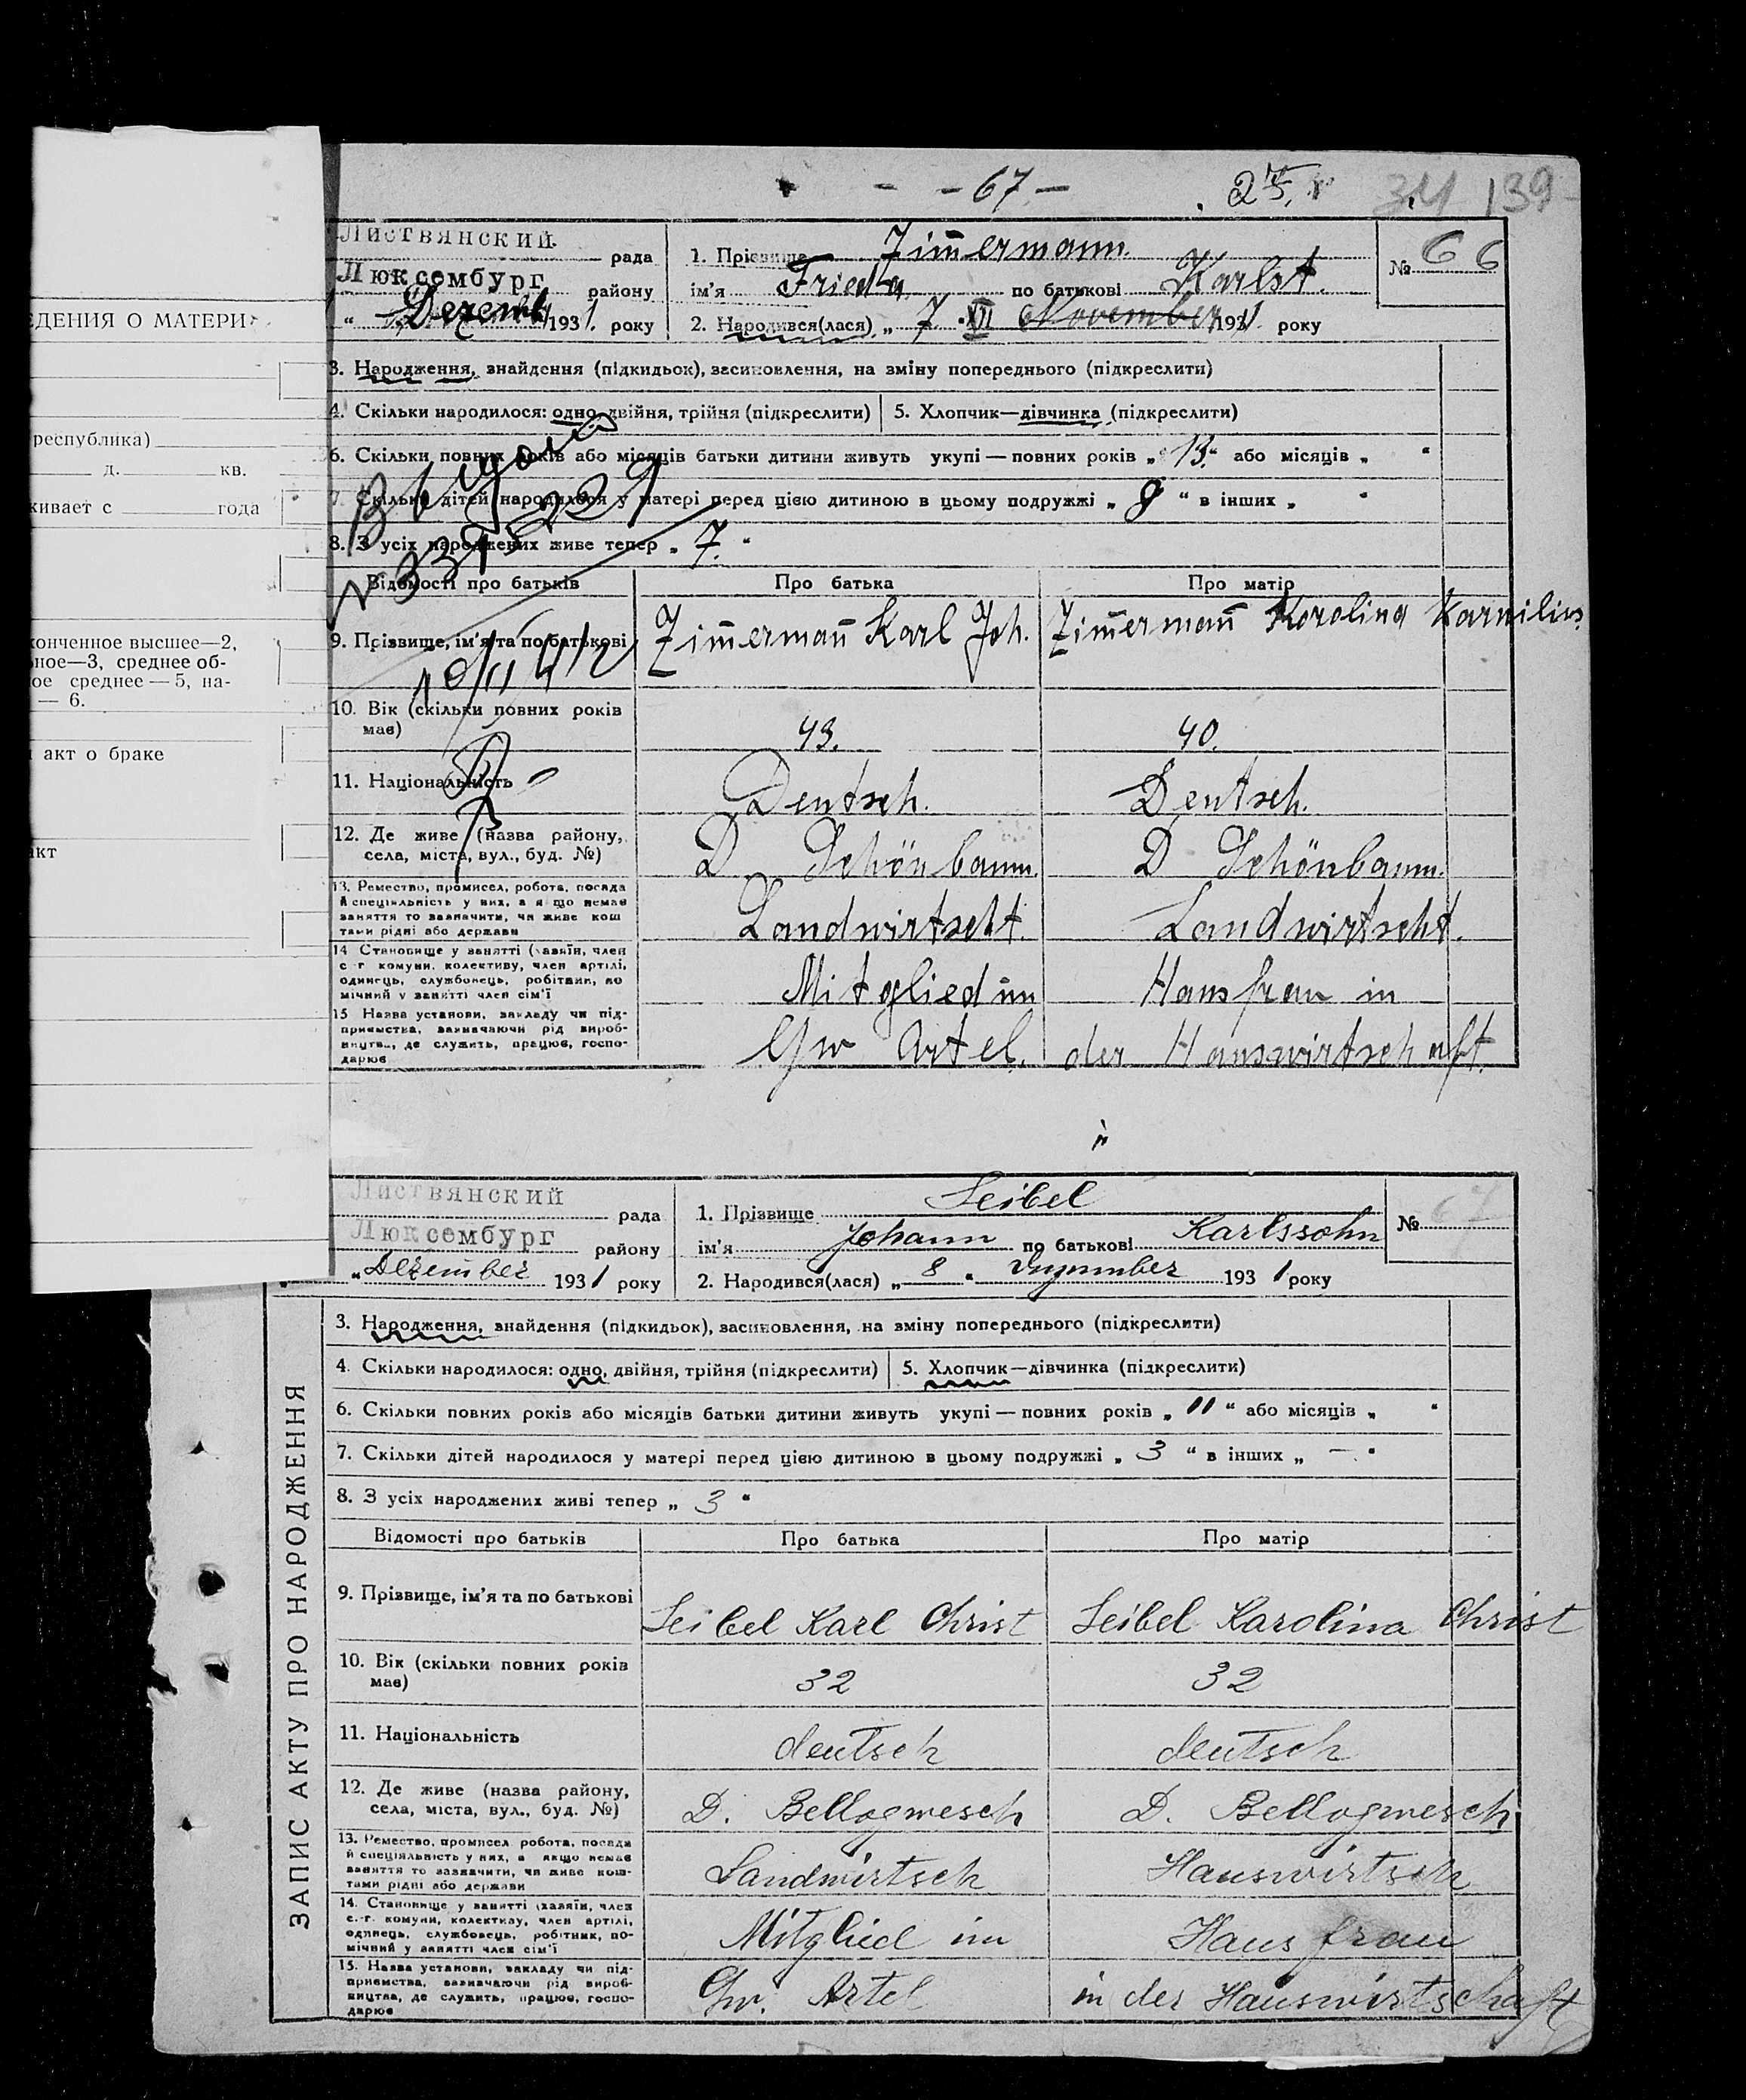 - - - 67 -
25.
34 139
Листвянский
рада
1. Прізвище Zim̄ermann.
№ 66
Люксембург
району
ім'я Frieda по батькові Karlst.
" Dezemb 1931. року
2. Народився(лася) „ 7. " XII November 1931. року
3. Народження, знайдення (підкидьок), засиновлення, на зміну попереднього (підкреслити)
4. Скільки народилося: одно, двійня, трійня (підкреслити)
5. Хлопчик—дівчинка (підкреслити)
6. Скільки повних років або місяців батьки дитини живуть укупі — повних років „ 13. " або місяців „ "
7. Скільки дітей народилося у матері перед цією дитиною в цьому подружжі „ 8 " в інших „ "
8. З усіх народжених живе тепер „ 7. "
Відомості про батьків
Про батька
Про матір
9. Прізвище, ім'я та по батькові
Zim̄erman̄ Karl Joh.
Zim̄erman̄ Karolina Karnilius.
10. Вік (скільки повних років
має)
43.
40.
11. Національність
Deutsch.
Deutsch.
12. Де живе (назва району,
села, міста, вул., буд. №)
D Schönbaum.
D Schönbaum.
13. Ремество, промисел, робота, посада
й спеціяльність у них, а якщо немає
заняття то зазначити, чи живе кош
тами рідні або держави
Landwirtscht.
Landwirtscht.
14 Становище у занятті (хазяїн, член
с г комуни, колективу, член артілі,
одинець, службовець, робітник, по
мічний у занятті член сім'ї
Mitglied im
Hausfrau in
15 Назва установи, закладу чи під-
приємства, зазначаючи рід вироб-
ництва, де служить, працює, госпо-
дарює
Gw Artel.
der Hauswirtschaft.
ДЕНИЯ О МАТЕРИ
республика)
д. кв.
живает с года
конченное высшее—2,
ное—3, среднее об-
ое среднее — 5, на-
— 6.
акт о браке
акт
Листвянский
рада
1. Прізвище Seibel
№ 67
Люксембург
району
ім'я Johann по батькові Karlssohn
„ Dezember 1931 року
2. Народився(лася) „ 8 " 1931 року
3. Народження, знайдення (підкидьок), засиновлення, на зміну попереднього (підкреслити)
4. Скільки народилося: одно, двійня, трійня (підкреслити)
5. Хлопчик—дівчинка (підкреслити)
6. Скільки повних років або місяців батьки дитини живуть укупі — повних років „ 11 " або місяців „ "
7. Скільки дітей народилося у матері перед цією дитиною в цьому подружжі „ 3 " в інших „ — "
8. З усіх народжених живі тепер „ 3 "
Відомості про батьків
Про батька
Про матір
9. Прізвище, ім'я та по батькові
Seibel Karl Christ
Seibel Karolina Christ
10. Вік (скільки повних років
має)
32
32
11. Національність
deutsch
deutsch
12. Де живе (назва району,
села, міста, вул., буд. №)
D. Bellogwesch
D. Bellogwesch
13. Ремество, промисел, робота, посада
й спеціяльність у них, а якщо немає
заняття то зазначити, чи живе кош-
тами рідні або держави
Landwirtsch
Hauswirtsch
14. Становище у занятті (хазяїн, член
с.-г. комуни, колективу, член артілі,
одинець, службовець, робітник, по-
мічний у занятті член сім'ї
Mitglied im
Haus frau
15. Назва установи, закладу чи під-
приємства, зазначаючи рід вироб-
ництва, де служить, працює, госпо-
дарює
Gw. Artel
in der Hauswirtschaft
ЗАПИС АКТУ ПРО НАРОДЖЕННЯ